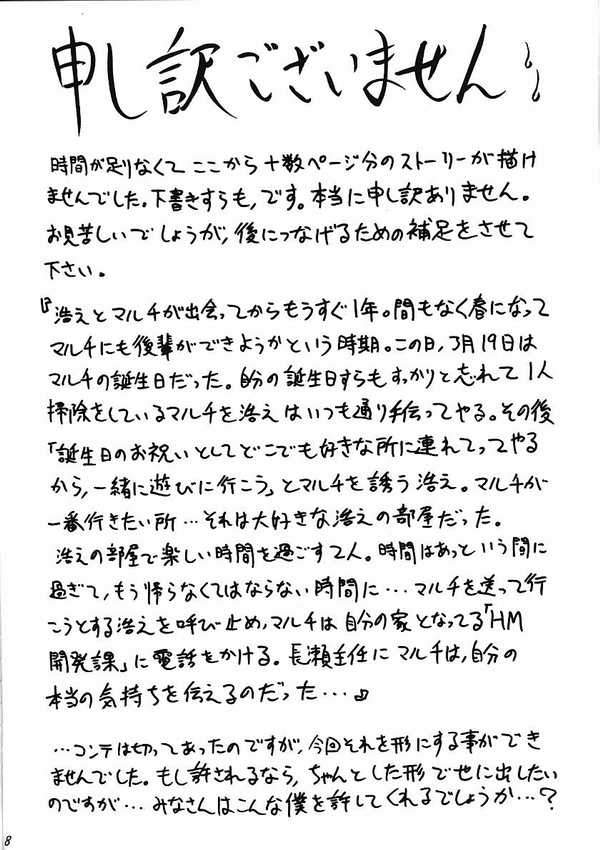 申し訳ございません
時間が足りなくて ここから十数ページ分のストーリーが描け
ませんでした。下書きすらも、です。本当に申し訳ありません。
お見苦しいでしょうが、後につなげるための補足をさせて
下さい。
『浩えとマルチが出会ってからもうすぐ1年。間もなく春になって
マルチにも後輩ができようかという時期。この日、3月19日は
マルチの誕生日だった。自分の誕生日すらもすっかりと忘れて1人
掃除をしているマルチを浩えはいつも通り手伝ってやる。その後
「誕生日のお祝いとしてどこでも好きな所に連れてってやる
から、一緒に遊びに行こう」とマルチを誘う浩え。マルチが
一番行きたい所…それは大好きな浩えの部屋だった。
浩えの部屋で楽しい時間を過ごす2人。時間はあっという間に
過ぎて、もう帰らなくてはならない時間に…マルチを送って行
こうとする浩えを呼び止め、マルチは自分の家となってる「HM
開発課」に電話をかける。長瀬主任にマルチは、自分の
本当の気持ちを伝えるのだった…』
…コンテは切ってあったのですが、今回それを形にする事ができ
ませんでした。もし許されるなら、ちゃんとした形で世に出したい
のですが… みなさんはこんな僕を許してくれるでしょうか…？
8